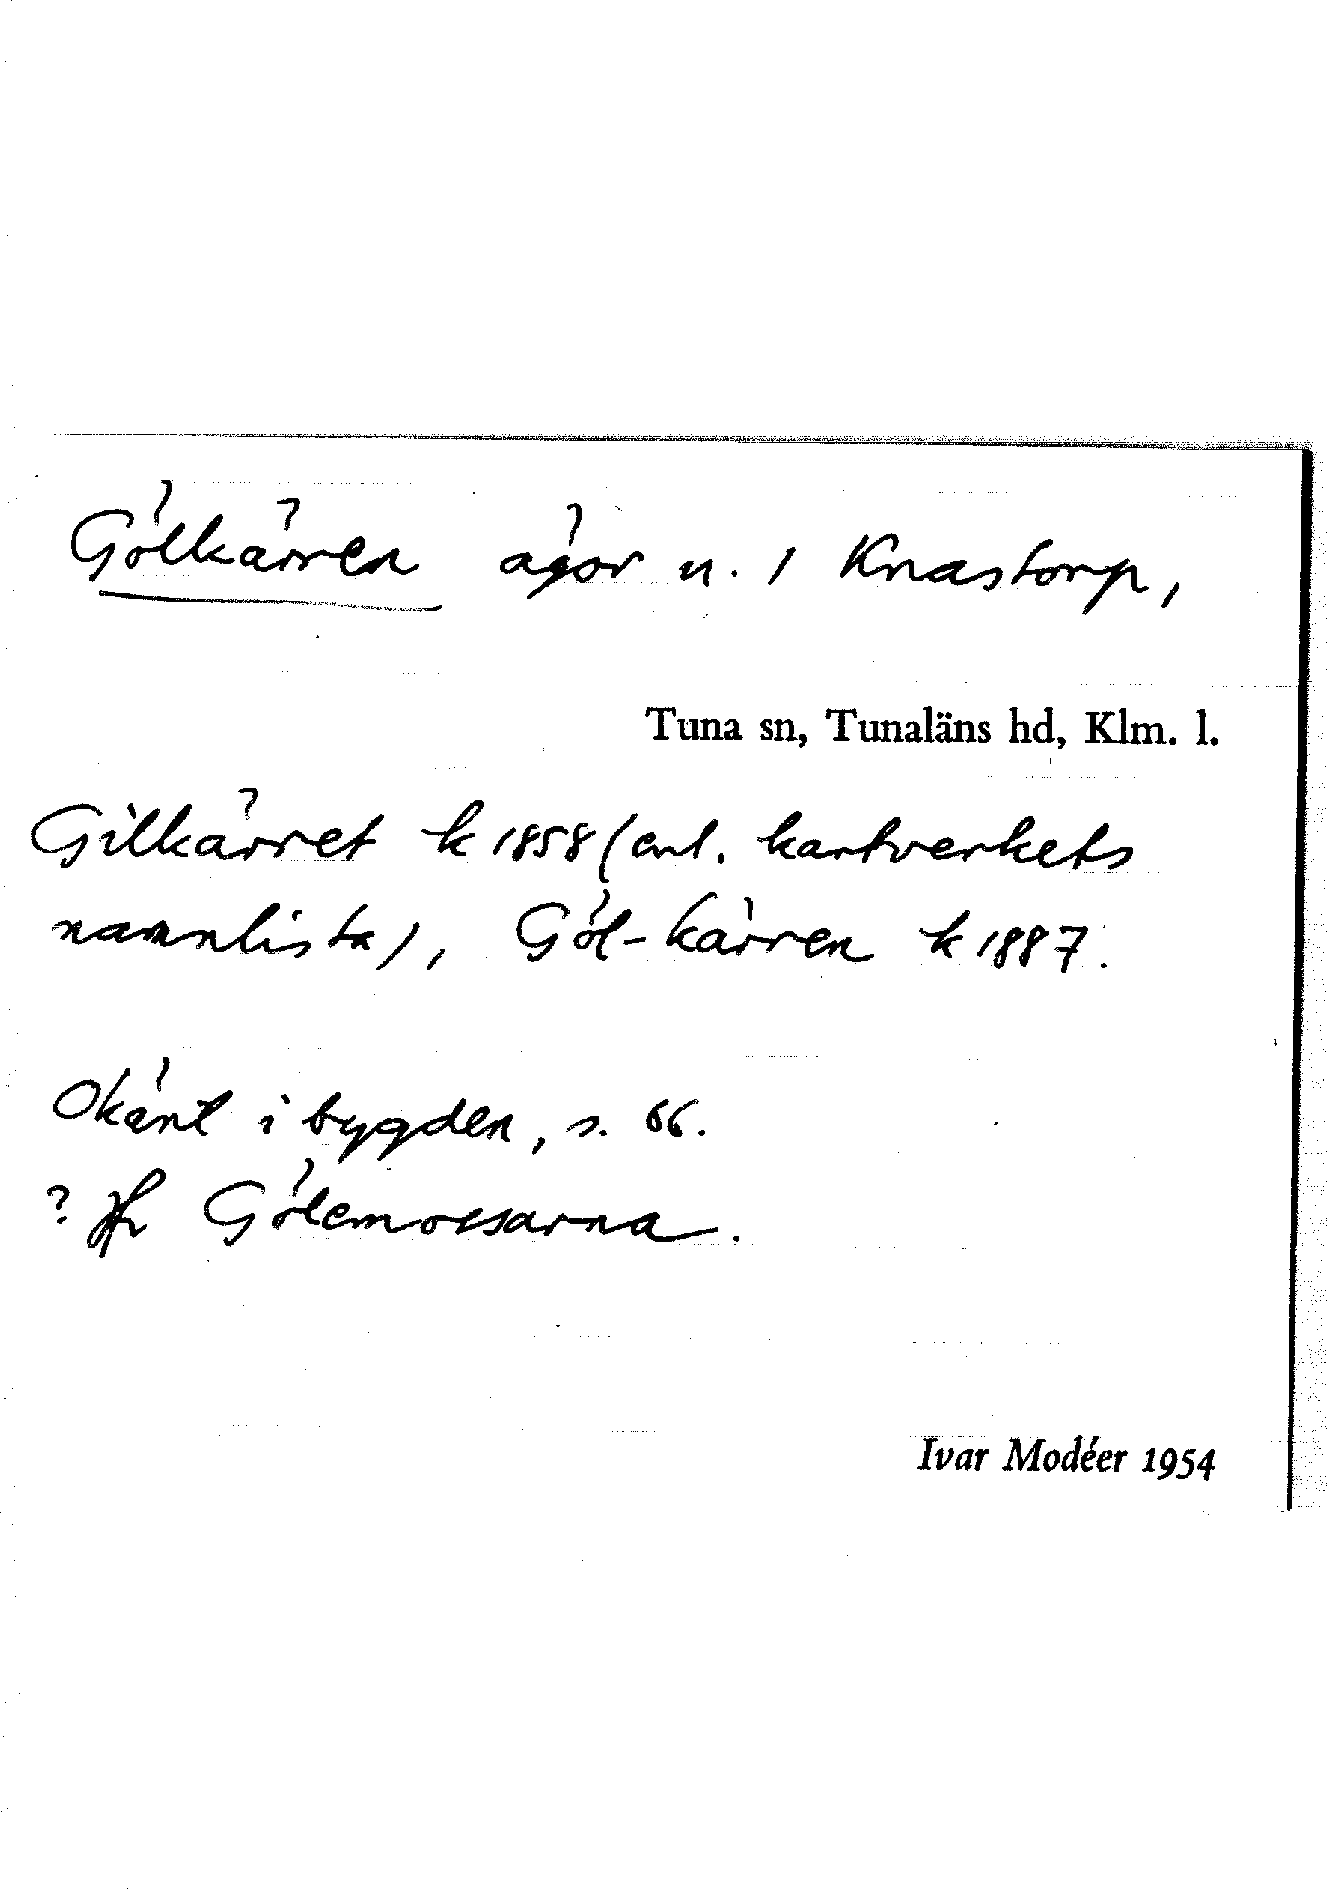 Gölkärren ägor u. 1 Knastorp,
Tuna sn, Tunaläns hd, Klm. l.
Gilkärret k 1858 (enl. kartverkets
namnlista), Göl-kärren k 1887.
Okänt i bygden, s. 66.
? jfr Gölemossarna.
Ivar Modéer 1954